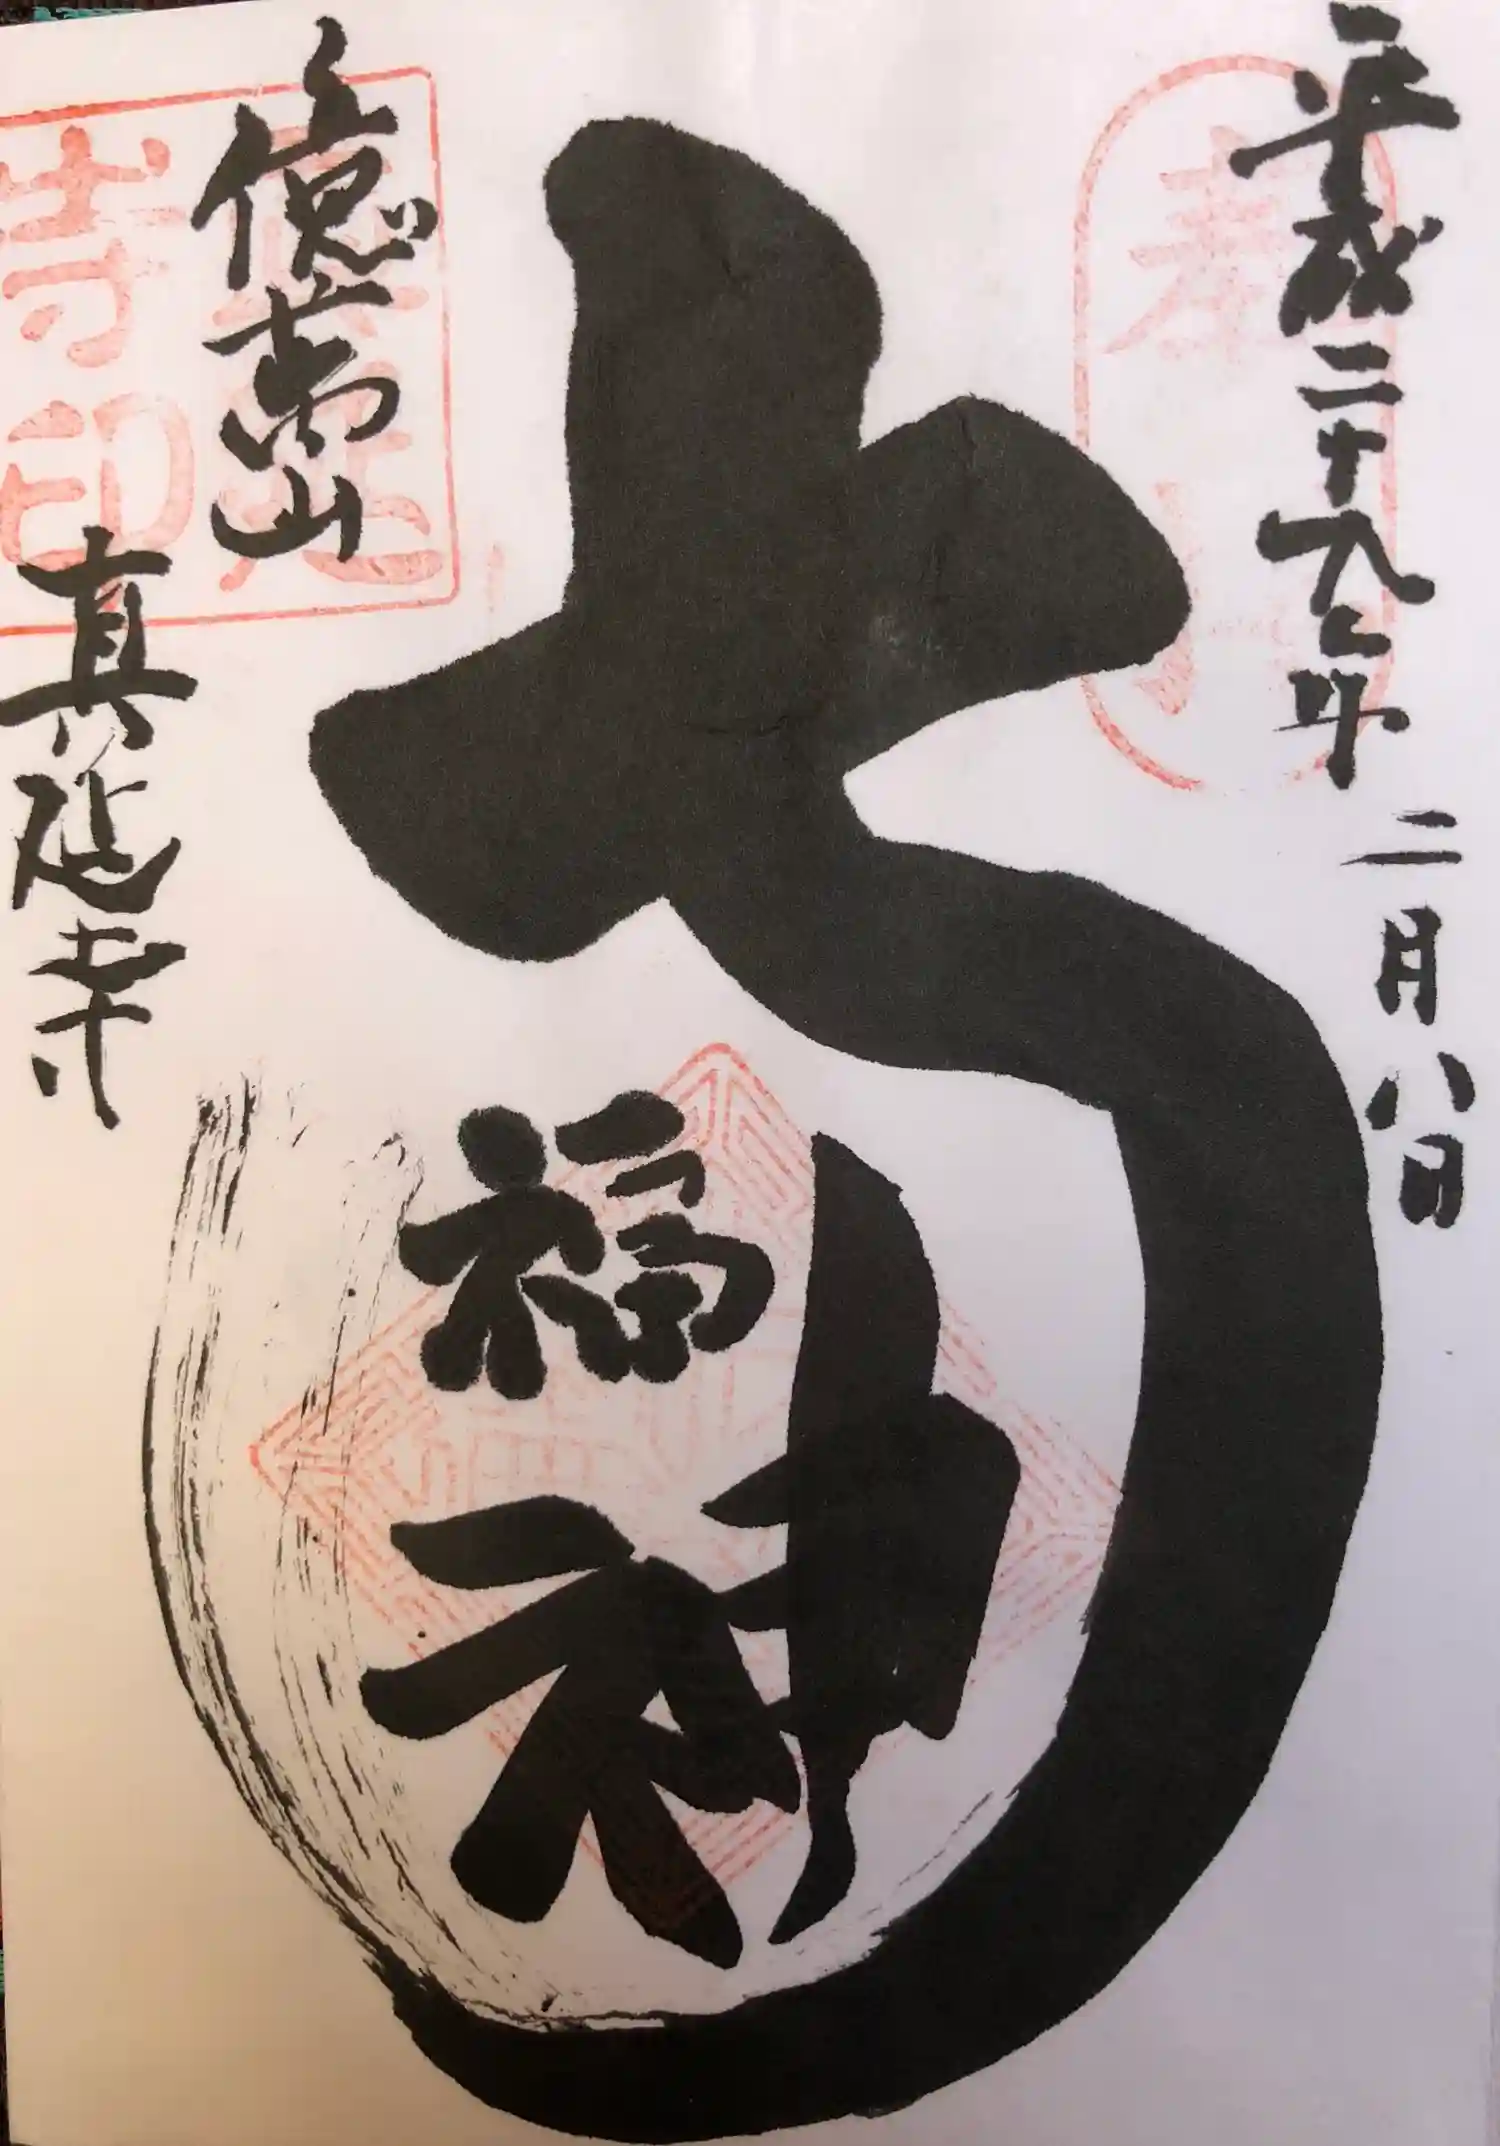 平成二十九年二月八日
七福神
億萬山
真延寺
真延
寺印